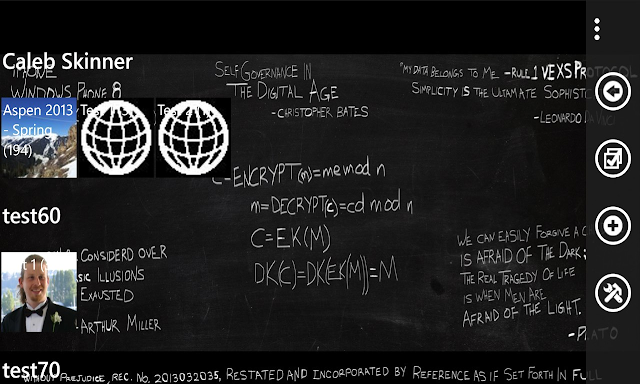 Caleb Skinner
WINDOWS PHONE 8
Aspen 2013
- Spring
(194)
SELF GOVERNANCE IN
THE DIGITAL AGE
-CHRISTOPHER BATES
"MY DATA BELONGS TO ME -RULE 1 VEXS PROTOCOL
SIMPLICITY IS THE ULTAMATE SOPHISTIC
-LEONARDO DAVINC
C=ENCRYPT(m)=me mod n
m=DECRYPT(c)=cd mod n
C=EK(M)
DK(C)=DK(EK(M))=M
test60
CONSIDERD OVER
ILLUSIONS
EXHAUSTED
-ARTHUR MILLER
WE CAN EASILY FORGIVE A C
IS AFRAID OF THE DARK;
THE REAL TRAGEDY OF LIFE
IS WHEN MEN ARE
AFRAID OF THE LIGHT.
-PLATO
test70
WITHOUT PREJUDICE, REC. NO. 2013032035, RESTATED AND INCORPORATED BY REFERENCE AS IF SET FORTH IN FULL